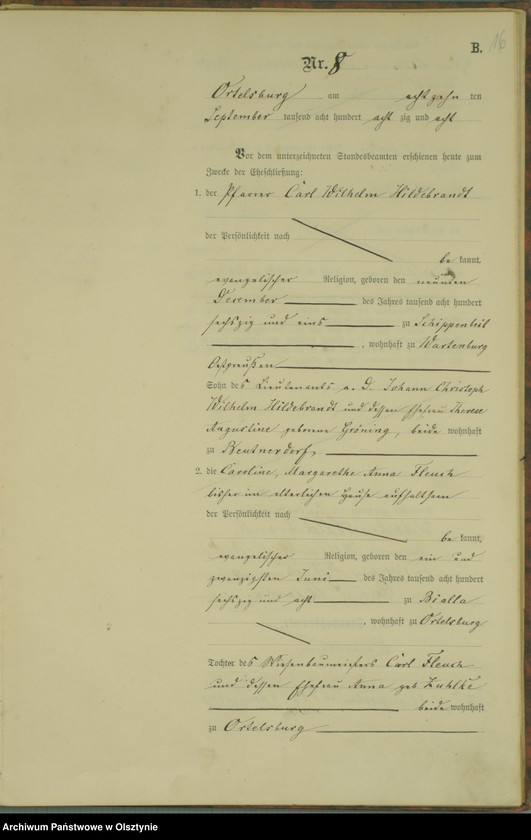 B. 16
Nr. 8
Ortelsburg am acht zehn ten
September tausend acht hundert acht zig und acht
Vor dem unterzeichneten Standesbeamten erschienen heute zum
Zwecke der Eheschließung:
1. der Pfarrer Carl Wilhelm Hildebrandt
der Persönlichkeit nach
be kannt,
evangelischer Religion, geboren den neunten
Dezember des Jahres tausend acht hundert
sechszig und eins zu Schippenbeil
, wohnhaft zu Wartenburg
Ostpreußen
Sohn des Lieutenants a. D. Johann Christoph
Wilhelm Hildebrandt und dessen Ehefrau Therese
Augustine geborene Gröning, beide wohnhaft
zu Beutnerdorf,
2. die Caroline, Margarethe Anna
bisher im elterlichen Hause aufhaltsam
der Persönlichkeit nach
be kannt,
evangelischer Religion, geboren den ein und
zwanzigsten Juni des Jahres tausend acht hundert
sechszig und acht zu Bialla
, wohnhaft zu Ortelsburg
Tochter des Wiesenbaumeisters Carl
und dessen Ehefrau Anna geb
beide wohnhaft
zu Ortelsburg
Archiwum Państwowe w Olsztynie